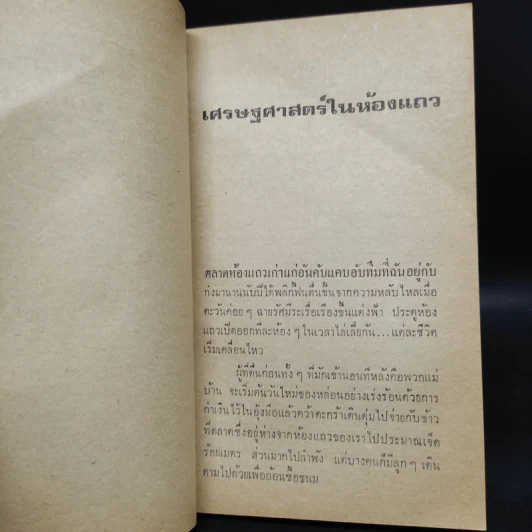 เศรษฐศาสตร์ในห้องแถว
ตลาดห้องแถวเก่าแก่อันคับแคบอับทึมที่ฉันอยู่กับ
ก๋งมานานนับปีได้พลิกฟื้นตื่นขึ้นจากความหลับไหลเมื่อ
ตะวันค่อย ๆ ฉายรัศมีระเรื่อเรืองขึ้นแต่งฟ้า ประตูห้อง
แถวเปิดออกทีละห้อง ๆ ในเวลาไล่เลี่ยกัน...แต่ละชีวิต
เริ่มเคลื่อนไหว
ผู้ที่ตื่นก่อนทั้ง ๆ ที่มักเข้านอนทีหลังคือพวกแม่
บ้าน จะเริ่มต้นวันใหม่ของหล่อนอย่างเร่งร้อนด้วยการ
กำเงินไว้ในอุ้งมือแล้วคว้าตะกร้าเดินดุ่มไปจ่ายกับข้าว
ที่ตลาดซึ่งอยู่ห่างจากห้องแถวของเราไปประมาณเจ็ด
ร้อยเมตร ส่วนมากไปลำพัง แต่บางคนก็มีลูก ๆ เดิน
ตามไปด้วยเพื่ออ้อนซื้อขนม